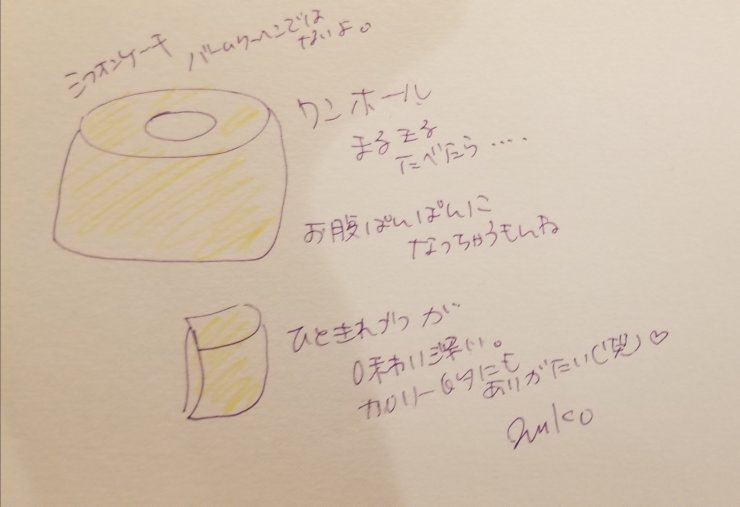 シフォンケーキ
バームクーヘンでは
ないよ。
ワンホール
まるまる
たべたら....
お腹ぱんぱんに
なっちゃうもんね
ひときれずつが
味わい深い。
カロリー的にも
ありがたい(笑)♡